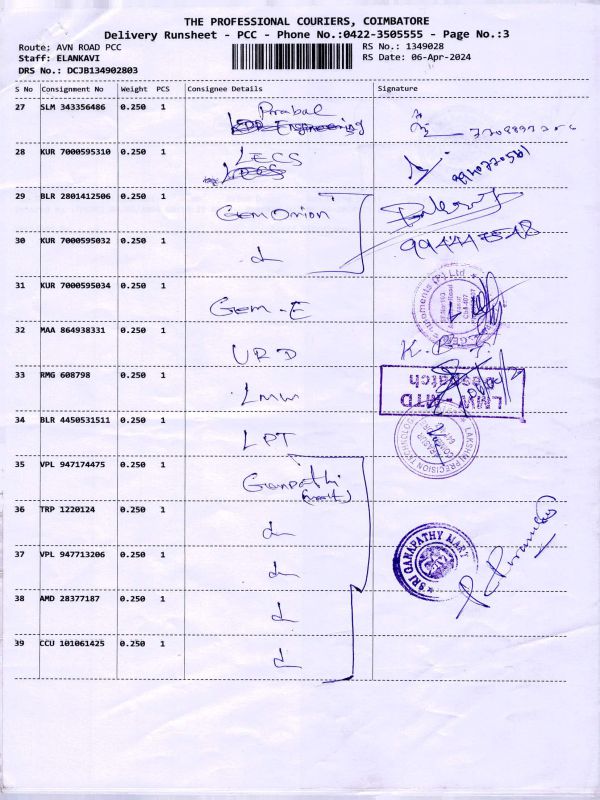 THE PROFESSIONAL COURIERS, COIMBATORE
Delivery Runsheet - PCC - Phone No.:0422-3505555 - Page No.:3
Route: AVN ROAD PCC RS No.: 1349028
Staff: ELANKAVI RS Date: 06-Apr-2024
DRS No.: DCJB134902803
S No Consignment No Weight PCS Consignee Details Signature
27 SLM 343356486 0.250 1 Prabal
Engineering
28 KUR 7000595310 0.250 1 LECS
29 BLR 2801412506 0.250 1 Gem Orion
30 KUR 7000595032 0.250 1
31 KUR 7000595034 0.250 1 Gem-E
32 MAA 864938331 0.250 1 URD
33 RMG 608798 0.250 1 LMW
LMW - MTD
Despatch
34 BLR 4450531511 0.250 1 LPT
LAKSHMI PRECISION TECHNOLOG
35 VPL 947174475 0.250 1 Ganpathi
36 TRP 1220124 0.250 1
37 VPL 947713206 0.250 1
SRI GANAPATHY MARY
38 AMD 28377187 0.250 1
39 CCU 101061425 0.250 1